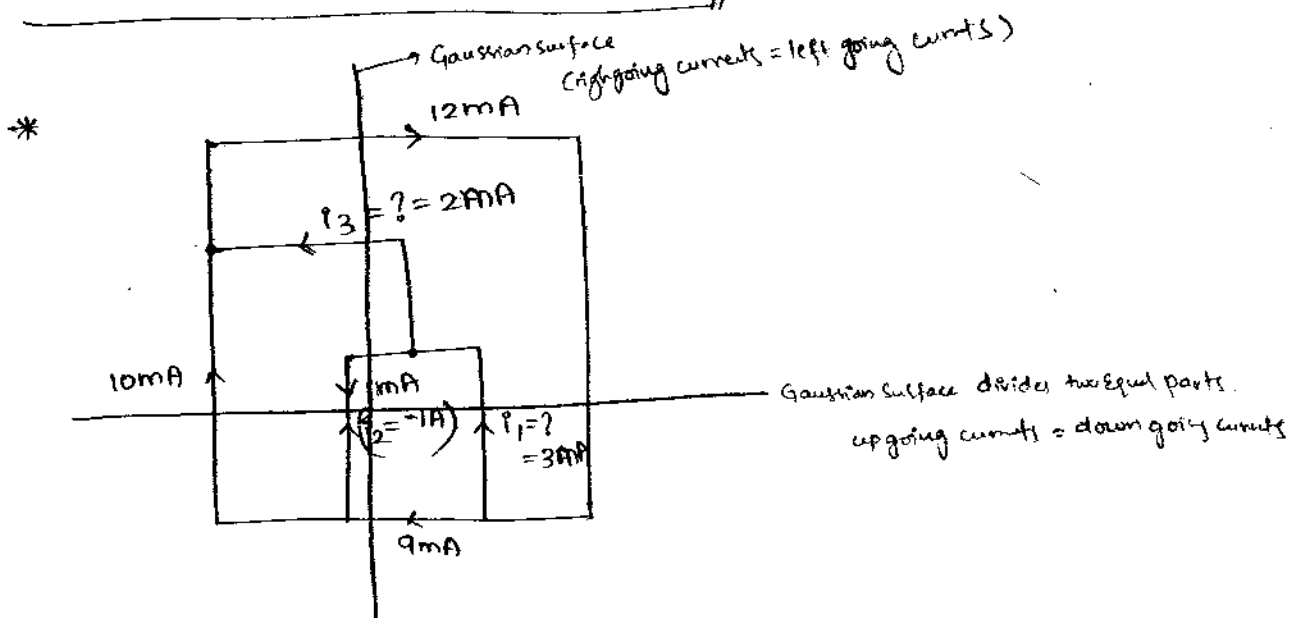 → Gaussian surface
(righgoing currents = left going currnts)
*
12mA
i3 = ? = 2mA
10mA
1mA
(i2 = -1A)
i1 = ?
= 3mA
Gaussian Surface divides two Equal parts.
upgoing currnts = down going currents
9mA